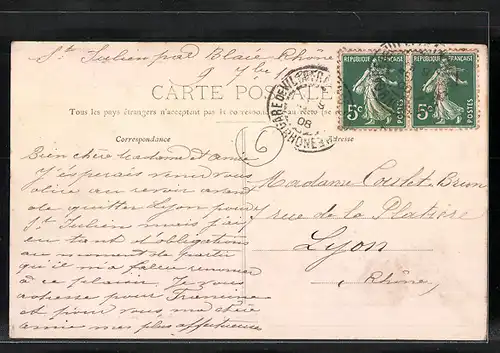 St Julien par Blacé Rhône
9 7bre
CARTE POSTALE
Tous les pays étrangers n'acceptent pas la correspondance au
Correspondance
Adresse
RÉPUBLIQUE FRANÇAISE
5c
POSTES
RÉPUBLIQUE FRANÇAISE
5c
POSTES
GARE DE VILLEFRANCHE
08
RHÔNE
6
Bien chère Madame et amie
J'espérais venir vous
dire au revoir avant
de quitter Lyon pour
St Julien mais j'ai
eu tant d'obligations
au moment de partir
qu'il m'a fallu renoncer
à ce plaisir. Je vous
adresse pour Francine
et pour vous ma chère
amie mes plus affectueuses
Madame Coulet Brun
7 rue de la Platière
Lyon
Rhône